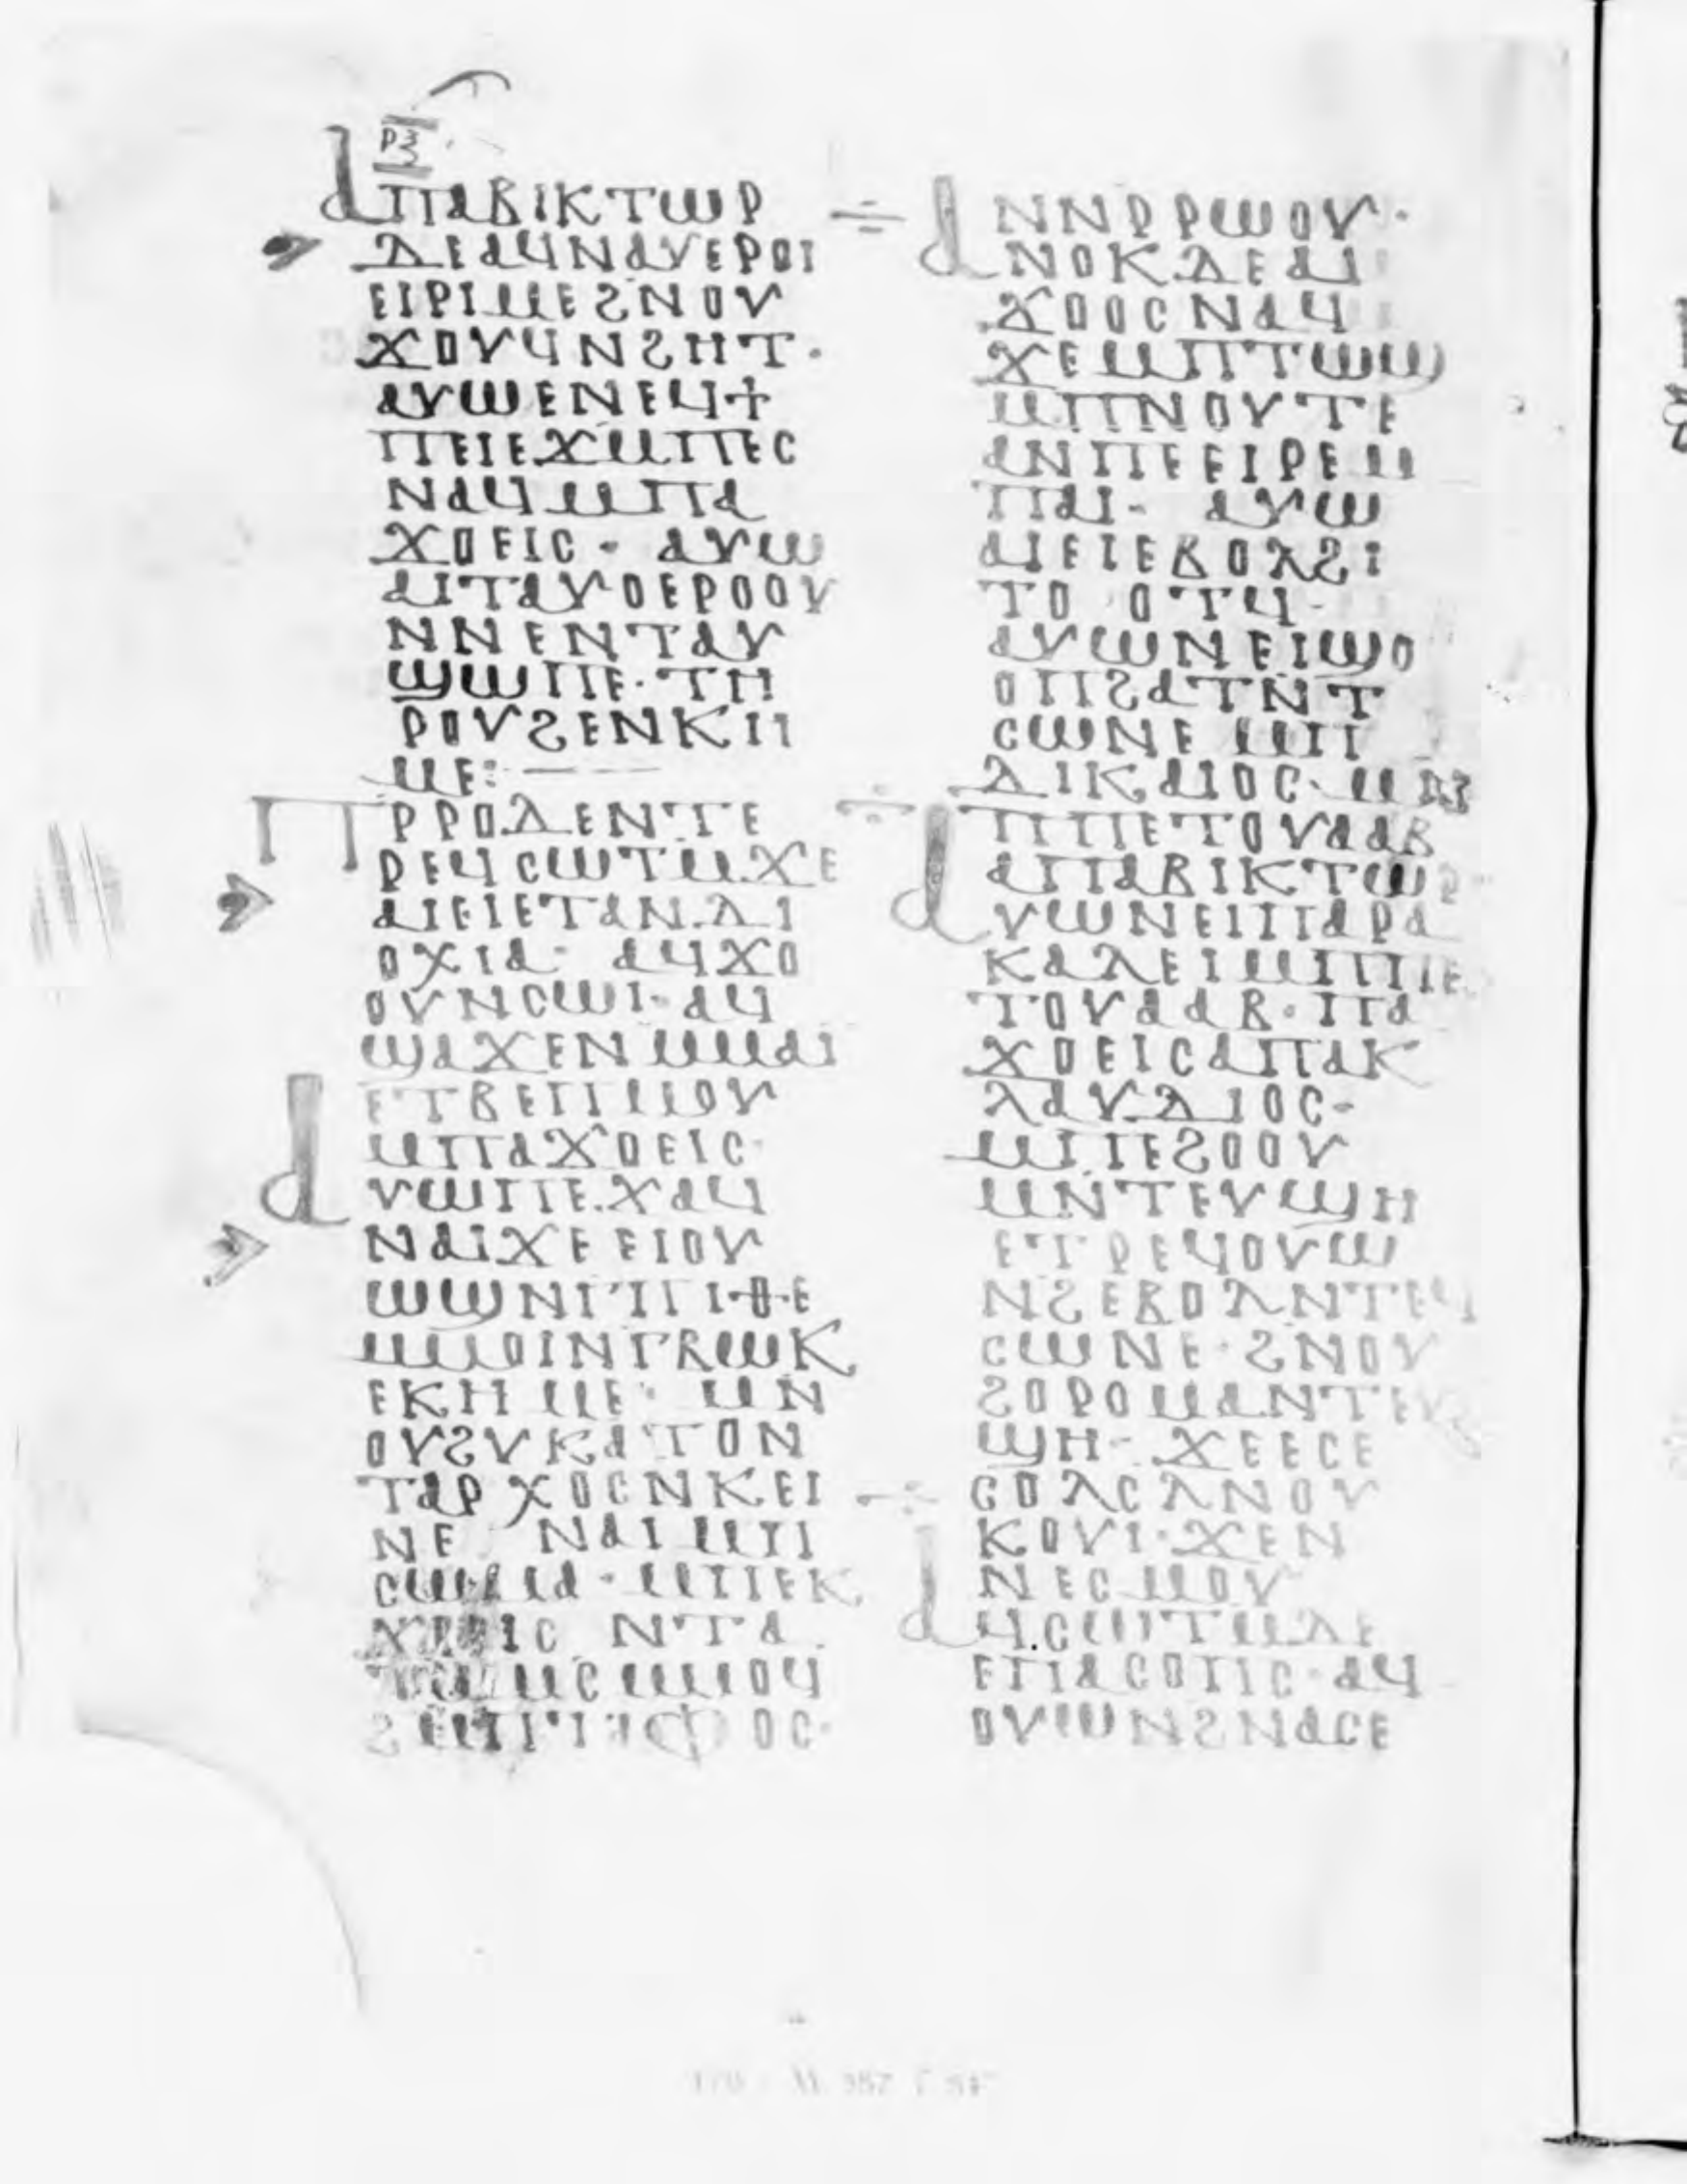 ⲣⲝ
ⲁⲡⲁⲃⲓⲕⲧⲱⲣ
ⲇⲉⲁϥⲛⲁⲩⲉⲣⲟⲓ
ⲉⲓⲣⲓⲙⲉϩⲛⲟⲩ
ϫⲟⲩϥⲛϩⲏⲧ·
ⲁⲩⲱⲉⲛⲉϥϯ
ⲡⲉⲓⲉϫⲙⲡⲉⲥ
ⲛⲁϥⲙⲡⲁ
ϫⲟⲉⲓⲥ· ⲁⲩⲱ
ⲁⲓⲧⲁⲩⲟⲉⲣⲟⲟⲩ
ⲛⲛⲉⲛⲧⲁⲩ
ϣⲱⲡⲉ· ⲧⲏ
ⲣⲟⲩϩⲉⲛⲕⲏ
ⲙⲉ:
ⲡⲣⲣⲟⲇⲉⲛⲧⲉ
ⲣⲉϥⲥⲱⲧⲙϫⲉ
ⲁⲓⲉⲓⲉⲧⲁⲛⲇⲓ
ⲟⲭⲓⲁ· ⲁϥϫⲟ
ⲟⲩⲛⲥⲱⲓ· ⲁϥ
ϣⲁϫⲉⲛⲙⲙⲁⲓ
ⲉⲧⲃⲉⲡⲙⲟⲩ
ⲙⲡⲁϫⲟⲉⲓⲥ·
ⲁⲩⲱⲡⲉϫⲁϥ
ⲛⲁⲓϫⲉⲉⲓⲟⲩ
ⲱϣⲛⲅⲡⲓⲑⲉ
ⲙⲙⲟⲓⲛⲅⲃⲱⲕ
ⲉⲕⲏⲙⲉ· ⲙⲛ
ⲟⲩϩⲩⲕⲁⲧⲟⲛ
ⲧⲁⲣⲭⲟⲥⲛⲕⲉⲓ
ⲛⲉ ⲛⲁⲓⲙⲡ
ⲥⲱⲙⲁ· ⲙⲡⲉⲕ
ϫⲟⲉⲓⲥ ⲛⲧⲁ
ⲧⲟⲙⲥⲙⲙⲟϥ
ϩⲙⲡⲧⲁⲫⲟⲥ·
ⲛⲛⲣⲣⲱⲟⲩ·
ⲁⲛⲟⲕⲇⲉⲁⲓ
ϫⲟⲟⲥⲛⲁϥ
ϫⲉⲙⲡⲧⲱϣ
ⲙⲡⲛⲟⲩⲧⲉ
ⲁⲛⲡⲉⲉⲓⲣⲉⲙ
ⲡⲁⲓ· ⲁⲩⲱ
ⲁⲓⲉⲓⲉⲃⲟⲗϩⲓ
ⲧⲟ ⲟⲧϥ·
ⲁⲩⲱⲛⲉⲓϣⲟ
ⲟⲡϩⲁⲧⲛⲧ
ⲥⲱⲛⲉ ⲙⲡ
ⲇⲓⲕⲁⲓⲟⲥ· ⲙⲛ
ⲡⲡⲉⲧⲟⲩⲁⲁⲃ
ⲁⲡⲁⲃⲓⲕⲧⲱⲣ
ⲁⲩⲱⲛⲉⲓⲡⲁⲣⲁ
ⲕⲁⲗⲉⲓⲙⲡⲡⲉ
ⲧⲟⲩⲁⲁⲃ· ⲡⲁ
ϫⲟⲉⲓⲥⲁⲡⲁⲕ
ⲗⲁⲩⲇⲓⲟⲥ·
ⲙⲡⲉϩⲟⲟⲩ
ⲙⲛⲧⲉⲩϣⲏ
ⲉⲧⲣⲉϥⲟⲩⲱ
ⲛϩⲉⲃⲟⲗⲛⲧⲉϥ
ⲥⲱⲛⲉ· ϩⲛⲟⲩ
ϩⲟⲣⲟⲙⲁⲛⲧⲉⲩ
ϣⲏ· ϫⲉⲉⲥⲉ
ⲥⲟⲗⲥⲗⲛⲟⲩ
ⲕⲟⲩⲓ· ϫⲉⲛ
ⲛⲉⲥⲙⲟⲩ
ⲁϥⲥⲱⲧⲙⲇⲉ
ⲉⲡⲁⲥⲟⲡⲥ· ⲁϥ
ⲟⲩⲱⲛϩⲛⲁⲥⲉ